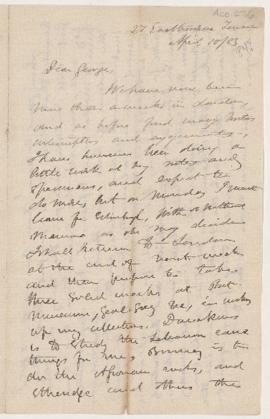 27 Eastbourne Terrace
April 10/85
Dear George,
We have now been
more than a week in London,
and as before find many
interruptions and engagements.
I have however been doing a
little work at my notes and
specimens, and expect to
do more, but on Monday I must
leave for Edinburgh. With or without
Mamma as she may decide
I shall return to London
at the end of next week
and then purpose to take
three solid weeks at Brit
Museum, Geol. Socy &c, in working
up my collections. Dawkins
is to study the Lebanon cave
things for me. Bonney is to
do the Assouan rocks, and
Etheridge and others the